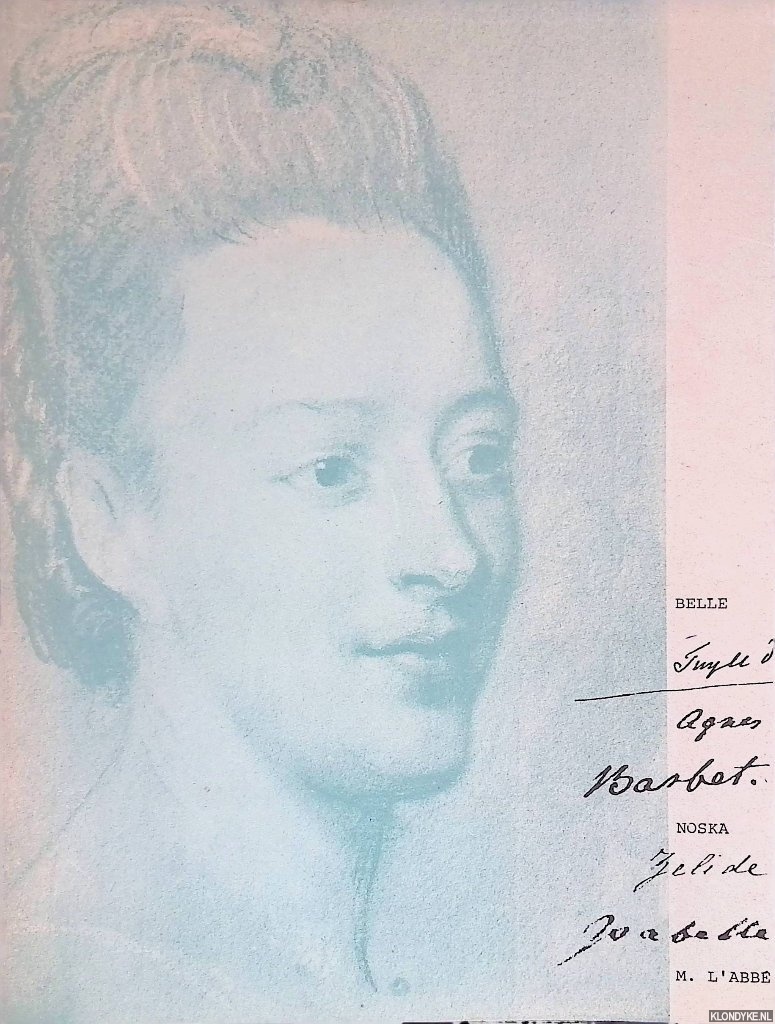 BELLE
Agnes
Barbet.
NOSKA
Zelide
Isabelle
M. L'ABBÉ
KLONDYKE.NL